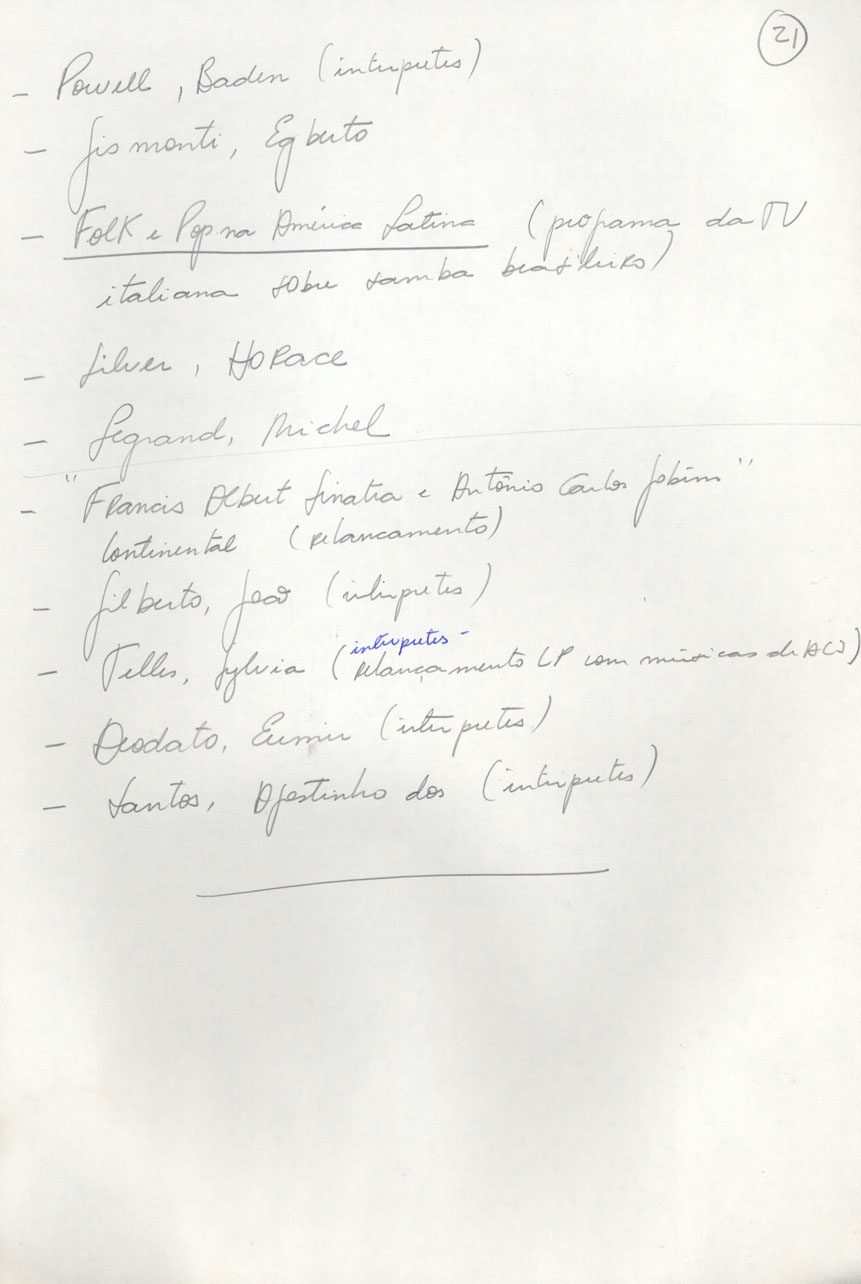 21
- Powell, Baden (intérpretes)
- Gismonti, Egberto
- Folk e Pop na América Latina (programa da TV
italiana sobre samba brasileiro)
- Silver, Horace
- Legrand, Michel
- "Francis Albert Sinatra e Antônio Carlos Jobim"
Continental (relançamento)
- Gilberto, João (intérpretes)
intérpretes -
- Telles, Sylvia (relançamento LP com músicas de ACJ)
- Deodato, Eumir (intérpretes)
- Santos, Agostinho dos (intérpretes)